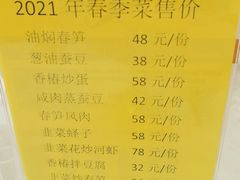 2021 年春季菜售价
油焖春笋 48 元/份
葱油蚕豆 38 元/份
香椿炒蛋 58 元/份
咸肉蒸蚕豆 42 元/份
春笋凤肉 58 元/份
韭菜蛏子 58 元/份
韭菜花炒河虾 78 元/份
香椿拌豆腐 32 元/份